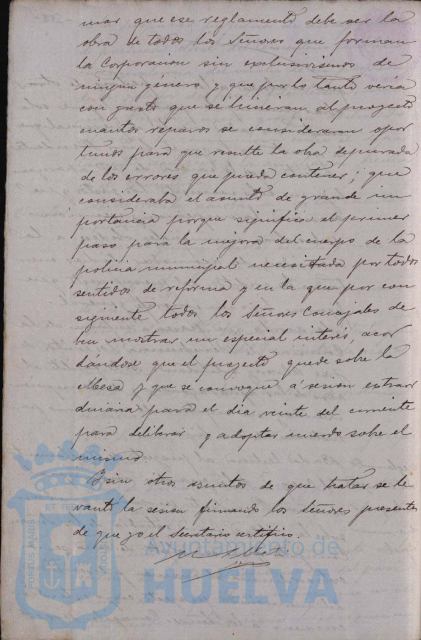 mar que ese reglamento debe ser la
obra de todos los Señores que forman
la Corporacion sin exclusivismos de
ningun género y que por lo tanto veria
con gusto que se hicieran al proyecto
cuantos reparos se consideraran opor
tunos para que resulte la obra depurada
de los errores que pueda contener; que
consideraba el asunto de grande im
portancia porque significa el primer
paso para la mejora del cuerpo de la
policia municipal necesitada por todos
sentidos de reforma y en la que por con
siguiente todos los Señores Concejales de
ben mostrar un especial interés, acor
dándose que el proyecto quede sobre la
Mesa y que se convoque á sesion extraor
dinaria para el dia veinte del corriente
para deliberar y adoptar acuerdo sobre el
mismo.
Y sin otros asuntos de que tratar se le
vantó la sesion firmando los Señores presentes
de que yo el Secretario certifico.
Ayuntamiento de
HUELVA